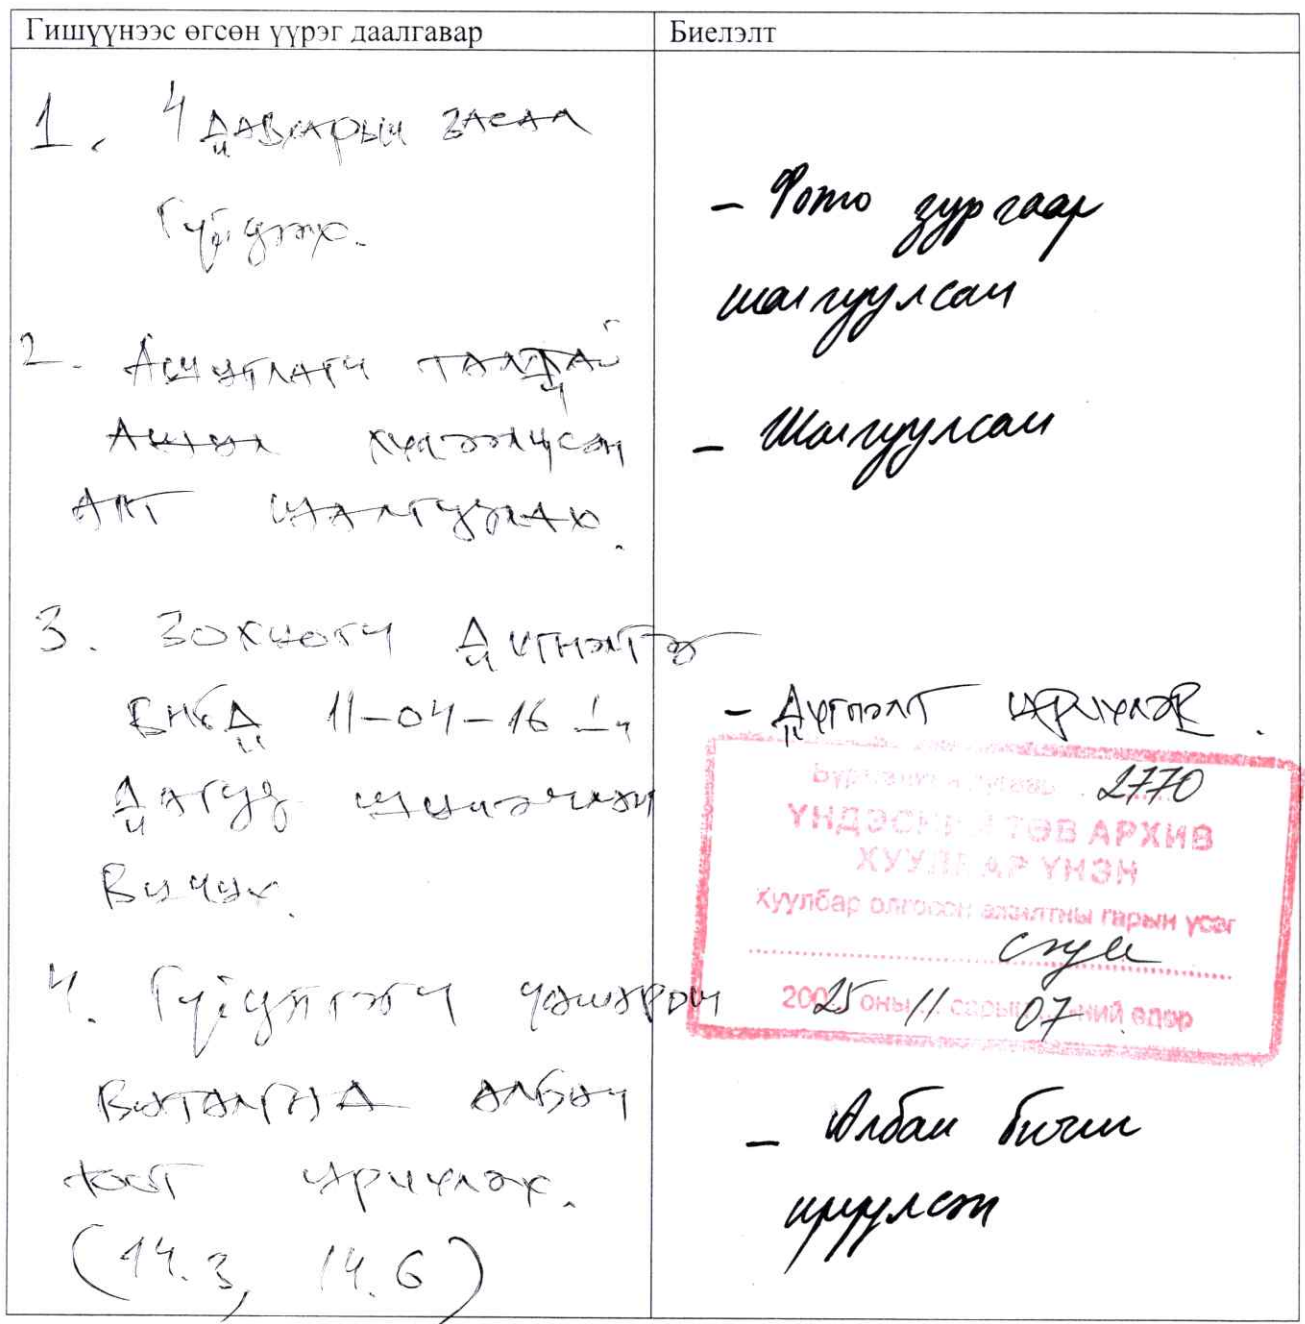 Гишүүнээс өгсөн үүрэг даалгавар
Биелэлт
1. 4 давхарын засал
гүйцээх.
- Фото зургаар
шалгуулсан
2. Ашиглагч талтай
Ашиг хүлээлцсэн
акт шалгуулах.
- Шалгуулсан
3. Зохиогч дүгнэлтээ
БНбД 11-04-16 -ын
дагуу шинэчлэн
бичих.
- Дүгнэлт ирүүлэв.
4. Гүйцэтгэгч
баталгаа албан
ёсоор ирүүлэх.
(14.3, 14.6)
- Албан бичиг
ирүүлсэн
Бүртгэлийн дугаар 2770
ҮНДЭСНИЙ ТӨВ АРХИВ
ХУУЛБАР ҮНЭН
Хуулбар олгосон ажилтны гарын үсэг
2025 оны 11 сарын 07-ний өдөр